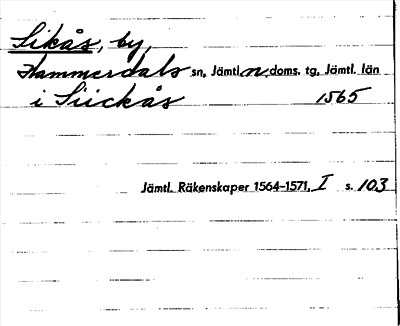 Sikås, by,
Hammerdals sn, Jämtl. n. doms. tg, Jämtl. län
i Siickås 1565
Jämtl. Räkenskaper 1564-1571, I s. 103